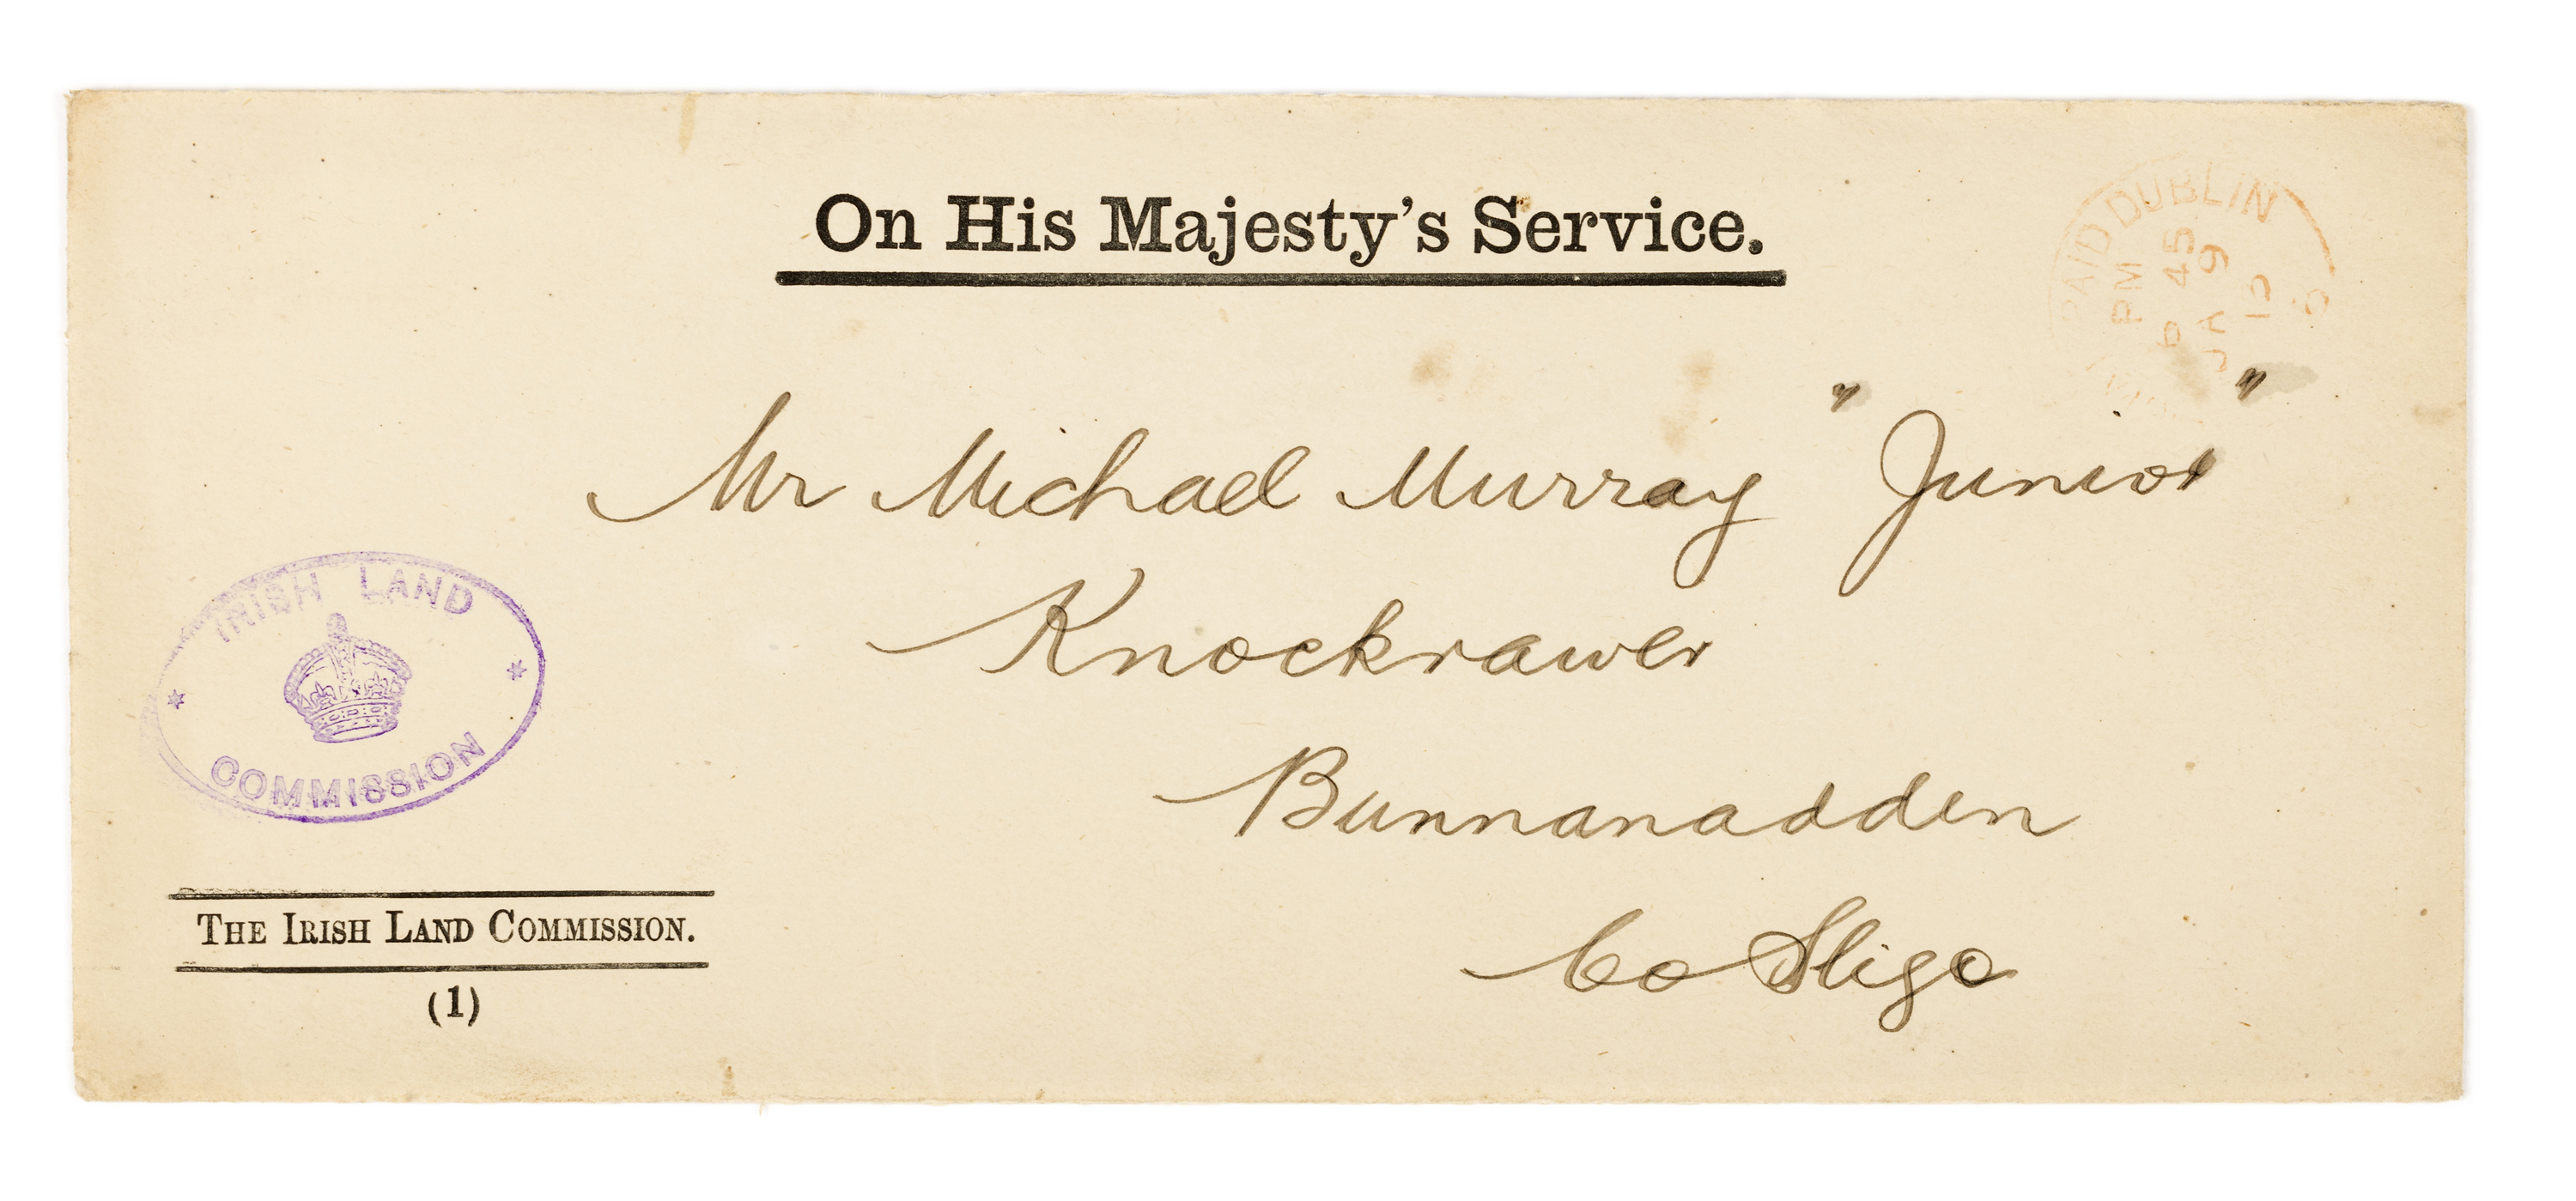 On His Majesty's Service.
PAID DUBLIN
PM
6 45
JA 9
15
Mr Michael Murray "Junior"
Knockrawer
Bunnanadden
Co Sligo
IRISH LAND
COMMISSION
THE IRISH LAND COMMISSION.
(1)